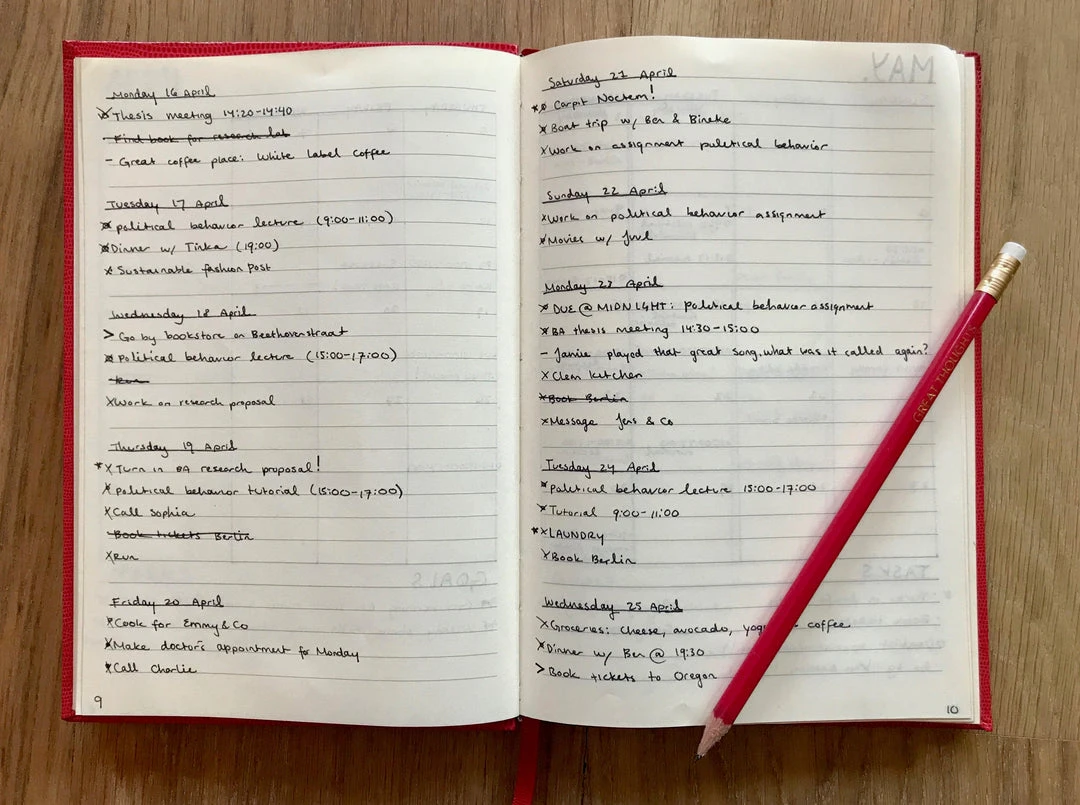 Monday 16 April
× Thesis meeting 14:20-14:40
- Find book for research lab
- Great coffee place: White Label Coffee
Tuesday 17 April
× political behavior lecture (9:00-11:00)
× Dinner w/ Tinka (19:00)
× Sustainable fashion post
Wednesday 18 April
> Go by bookstore on Beethovenstraat
× Political behavior lecture (15:00-17:00)
Run
× Work on research proposal
Thursday 19 April
* × Turn in BA research proposal!
× political behavior tutorial (15:00-17:00)
× Call Sophia
Book tickets Berlin
× Run
Friday 20 April
× Cook for Emmy & Co
× Make doctor's appointment for Monday
× Call Charlie
9
MAY.
Saturday 21 April
* × Carpit Noctem!
× Boat trip w/ Ben & Bineke
× Work on assignment political behavior
Sunday 22 April
× Work on political behavior assignment
× Movies w/ Juul
Monday 23 April
× DUE @ MIDNIGHT: political behavior assignment
× BA thesis meeting 14:30-15:00
- Jamie played that great song, what was it called again?
× Clean kitchen
× Book Berlin
× Message Jens & Co
Tuesday 24 April
× Political behavior lecture 15:00-17:00
× Tutorial 9:00-11:00
* × LAUNDRY
× Book Berlin
Wednesday 25 April
× Groceries: cheese, avocado, coffee
× Dinner w/ Ben @ 19:30
> Book tickets to Oregon
10
GOALS
TASKS
GREAT THOUGHTS